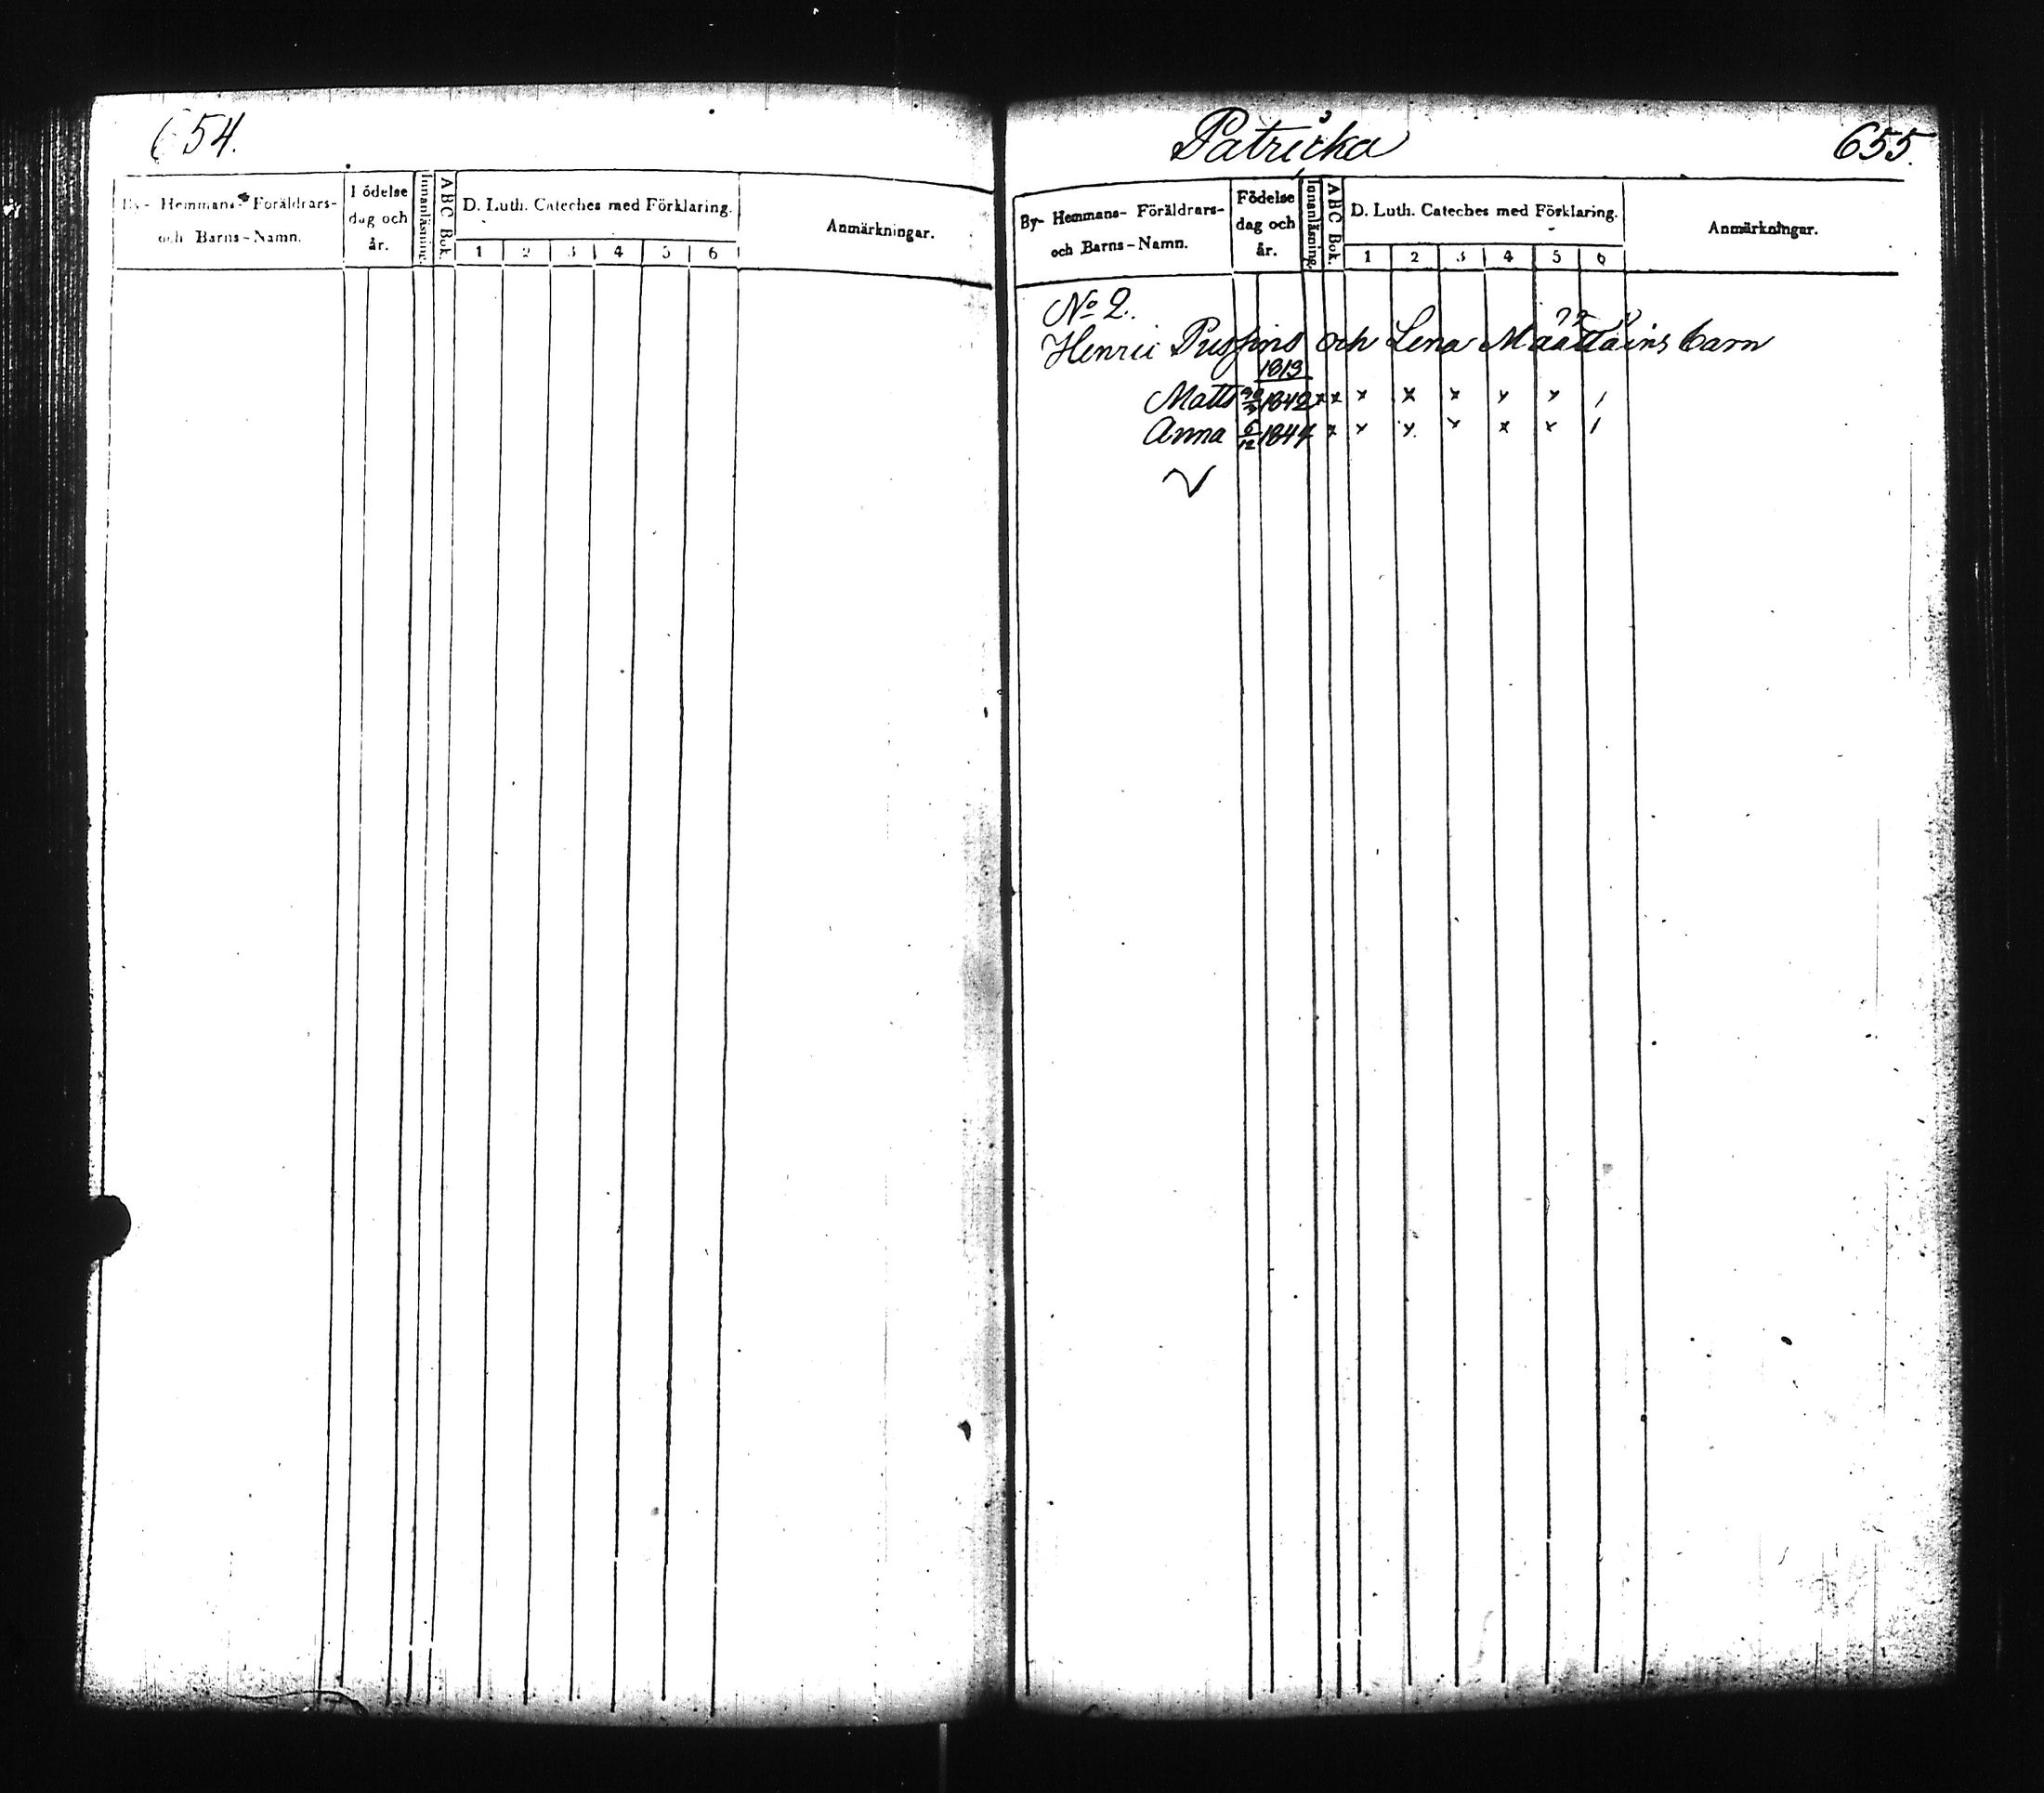 654.
By- Hemmans- Föräldrars-
och Barns-Namn.
Födelse
dag och
år.
Innanläsning.
ABC Bok.
D. Luth. Cateches med Förklaring.
1 2 3 4 5 6
Anmärkningar.
Patricka 655.
By- Hemmans- Föräldrars-
och Barns-Namn.
Födelse
dag och
år.
Innanläsning.
ABC Bok.
D. Luth. Cateches med Förklaring.
1 2 3 4 5 6
Anmärkningar.
No 2.
Henric och Lena Määttäins barn
1813
Matts 1842 x x x x x x x 1
Anna 6/12 1847 x x x x x x 1